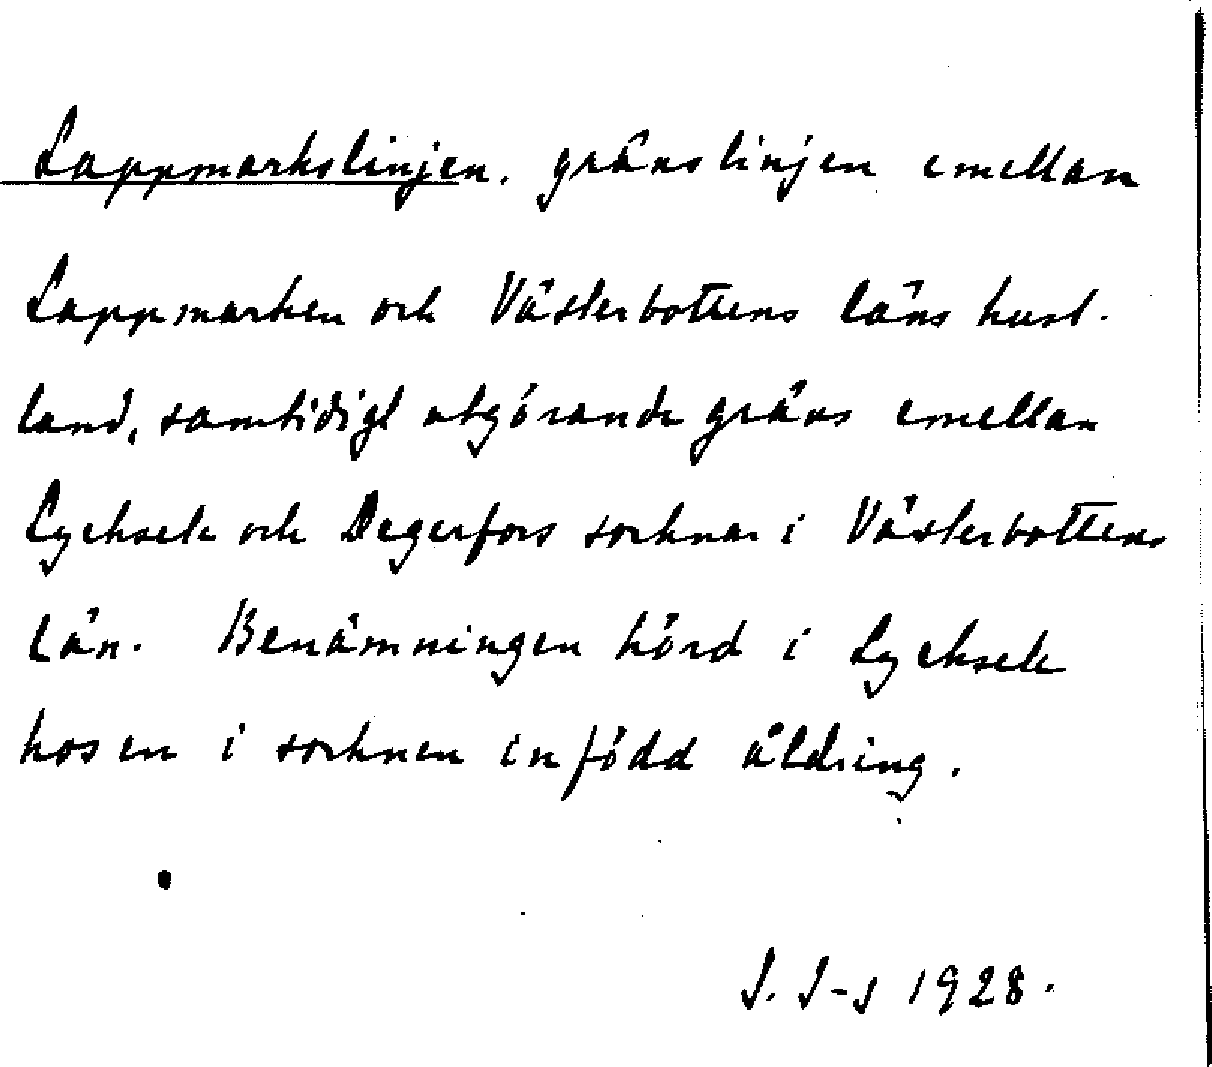 Lappmarkslinjen. gränslinjen emellan
Lappmarken och Västerbottens läns kust-
land, samtidigt utgörande gräns emellan
Lycksele och Degerfors socknar i Västerbottens
län. Benämningen hörd i Lycksele
hos en i socknen infödd åldring.
J. J-s 1928.